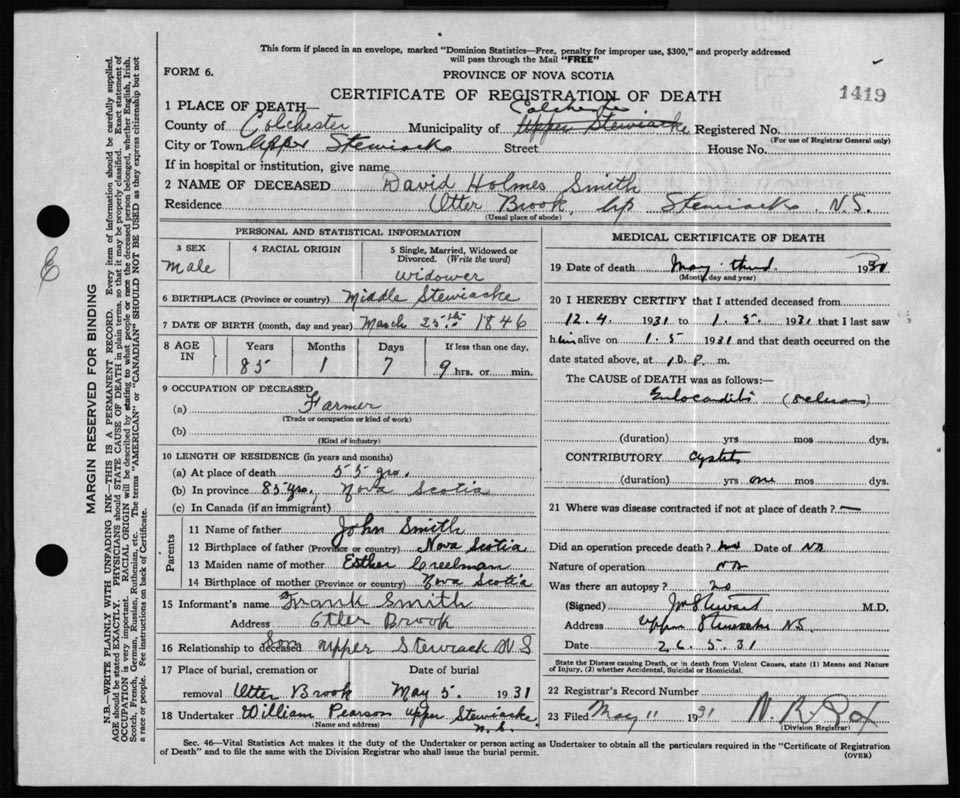 This form if placed in an envelope, marked "Dominion Statistics—Free, penalty for improper use, $300," and properly addressed
will pass through the Mail "FREE"
FORM 6.
PROVINCE OF NOVA SCOTIA
CERTIFICATE OF REGISTRATION OF DEATH
1419
1 PLACE OF DEATH—
Colchester
County of Colchester Municipality of Upper Stewiacke Registered No.
(For use of Registrar General only)
City or Town Upper Stewiacke Street House No.
If in hospital or institution, give name
2 NAME OF DECEASED David Holmes Smith
Residence Otter Brook, Up Stewiacke, N.S.
(Usual place of abode)
PERSONAL AND STATISTICAL INFORMATION
3 SEX 4 RACIAL ORIGIN 5 Single, Married, Widowed or
Divorced. (Write the word)
Male widower
6 BIRTHPLACE (Province or country) Middle Stewiacke
7 DATE OF BIRTH (month, day and year) March 25th 1846
8 AGE IN Years Months Days If less than one day.
85 1 7 9 hrs. or min.
9 OCCUPATION OF DECEASED
(a) Farmer
(Trade or occupation or kind of work)
(b)
(Kind of industry)
10 LENGTH OF RESIDENCE (in years and months)
(a) At place of death 55 yrs.
(b) In province 85 yrs. Nova Scotia
(c) In Canada (if an immigrant)
Parents
11 Name of father John Smith
12 Birthplace of father (Province or country) Nova Scotia
13 Maiden name of mother Esther Creelman
14 Birthplace of mother (Province or country) Nova Scotia
15 Informant's name Frank Smith
Address Otter Brook
16 Relationship to deceased Son Upper Stewiack N S
17 Place of burial, cremation or Date of burial
removal Otter Brook May 5. 1931
18 Undertaker William Pearson Upper Stewiacke
(Name and address) N.S.
MEDICAL CERTIFICATE OF DEATH
19 Date of death May third 193
(Month, day and year)
20 I HEREBY CERTIFY that I attended deceased from
12.4. 1931 to 1.5. 1931 that I last saw
him alive on 1.5 1931 and that death occurred on the
date stated above, at m.
The CAUSE of DEATH was as follows:—
Endocarditis
(duration) yrs mos dys.
CONTRIBUTORY Cystitis
(duration) yrs one mos dys.
21 Where was disease contracted if not at place of death? —
Did an operation precede death? no Date of
Nature of operation
Was there an autopsy? no
(Signed) Stewart M.D.
Address Upper Stewiacke NS.
Date 26.5.31
State the Disease causing Death, or in death from Violent Causes, state (1) Means and Nature
of Injury, (2) whether Accidental, Suicidal or Homicidal.
22 Registrar's Record Number
23 Filed May 11 1931
(Division Registrar)
Sec. 46—Vital Statistics Act makes it the duty of the Undertaker or person acting as Undertaker to obtain all the particulars required in the "Certificate of Registration
of Death" and to file the same with the Division Registrar who shall issue the burial permit. (OVER)
MARGIN RESERVED FOR BINDING
N.B.—WRITE PLAINLY WITH UNFADING INK—THIS IS A PERMANENT RECORD. Every item of information should be carefully supplied.
AGE should be stated EXACTLY. PHYSICIANS should STATE CAUSE OF DEATH in plain terms, so that it may be properly classified. Exact statement of
OCCUPATION is very important. RACIAL ORIGIN will be described by stating to what people or race the deceased person belonged, whether English, Irish,
Scotch, French, German, Russian, Ruthenian, etc. The terms "AMERICAN" or "CANADIAN" SHOULD NOT BE USED as they express citizenship but not
a race or people. Fee instructions on back of Certificate.